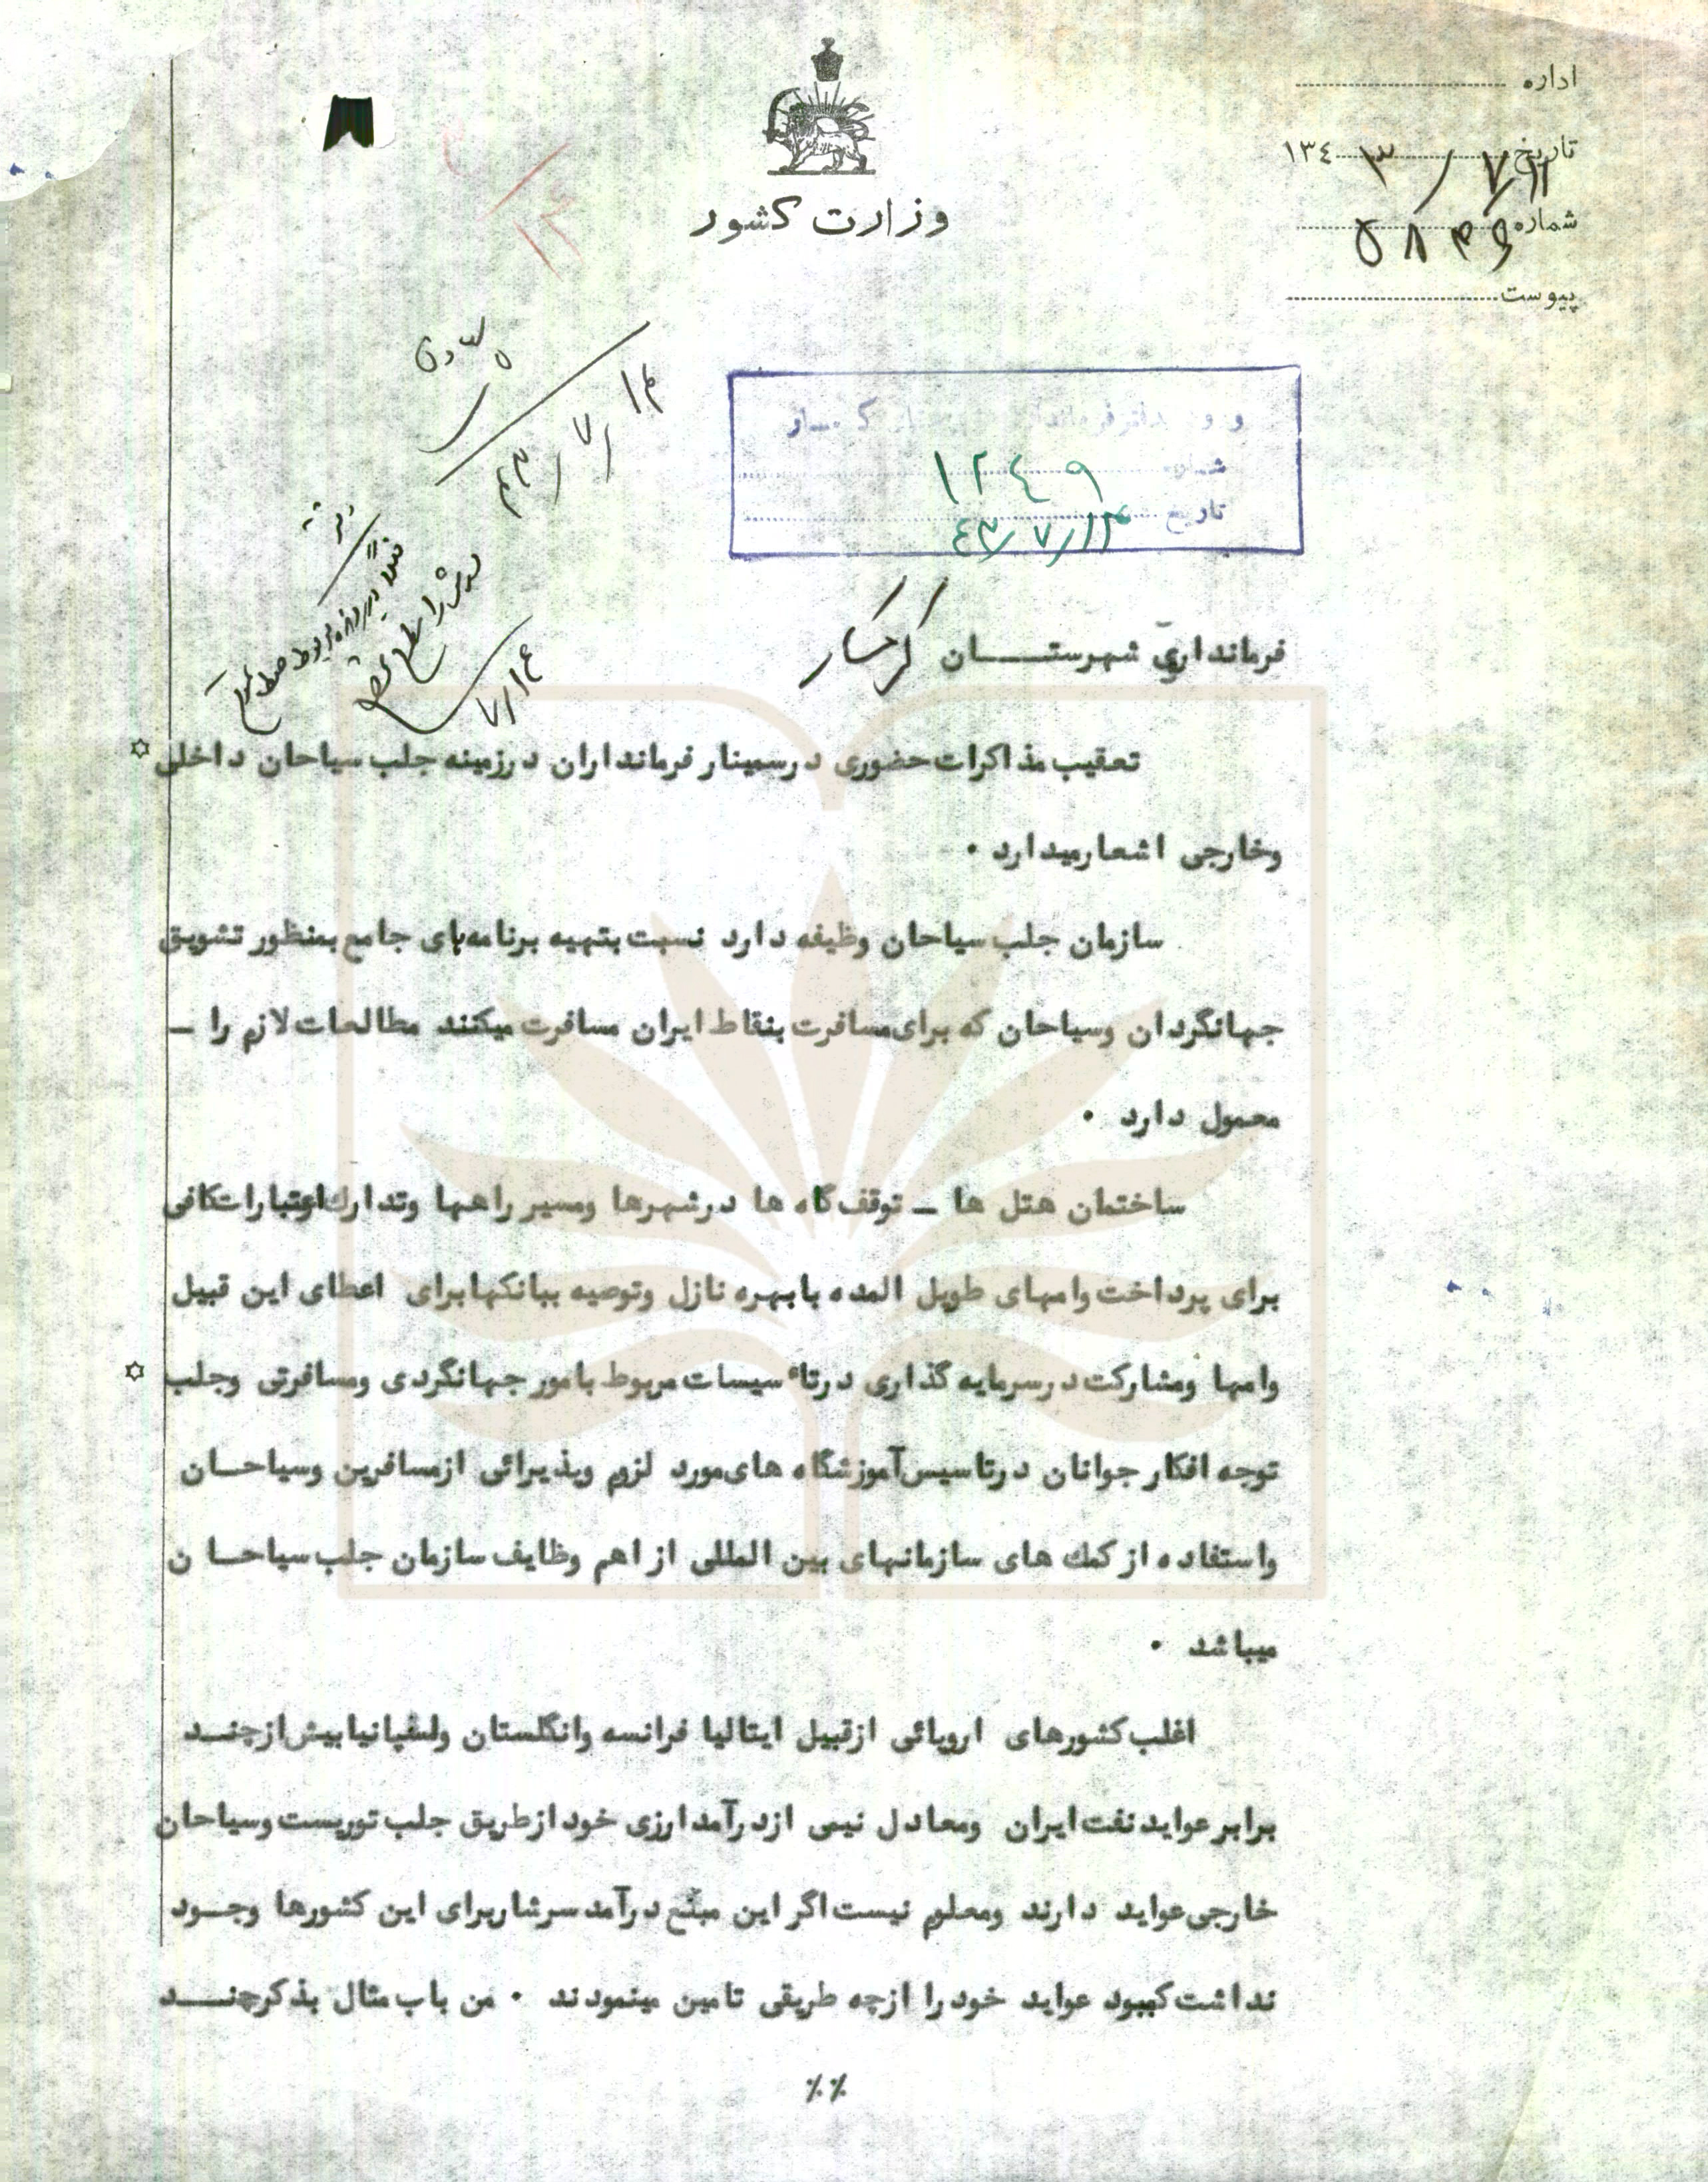 اداره
تاریخ ۱۱/۷/۱۳۴۳
شماره ۵۸۴۶
پیوست
وزارت کشور
شماره ۱۲٤۹
تاریخ ٤۳/۷/۱۳
۴۳/۷/۱۴
۷/۱۴
فرمانداری شهرستـــان گرمسار
تعقیب مذاکرات حضوری درسمینار فرمانداران درزمینه جلب سیاحان داخلی
وخارجی اشعارمیدارد .
سازمان جلب سیاحان وظیفه دارد نسبت بتهیه برنامه‌های جامع بمنظور تشویق
جهانگردان وسیاحان که برای مسافرت بنقاط ایران مسافرت میکنند مطالعات لازم را ــ
معمول دارد .
ساختمان هتل ها ــ توقف گاه ها درشهرها ومسیر راهها وتدارك اعتبارات کافی
برای پرداخت وامهای طویل المده بابهره نازل وتوصیه ببانکها برای اعطای این قبیل
وامها ومشارکت درسرمایه گذاری درتاٴسیسات مربوط بامور جهانگردی ومسافرتی وجلب
توجه افکار جوانان درتاسیس آموزشگاه های مورد لزوم وپذیرائی ازمسافرین وسیاحــان
واستفاده از کمك های سازمانهای بین المللی از اهم وظایف سازمان جلب سیاحــا ن
میباشد .
اغلب کشورهای اروپائی ازقبیل ایتالیا فرانسه وانگلستان واسپانیا بیش ازچنــد
برابر عواید نفت ایران ومعادل نیمی ازدرآمد ارزی خود ازطریق جلب توریست وسیاحان
خارجی عواید دارند ومعلوم نیست اگر این منبع درآمد سرشار برای این کشورها وجــود
نداشت کمبود عواید خود را ازچه طریقی تامین مینمودند . من باب مثال بذکر چنـــد
٪٪